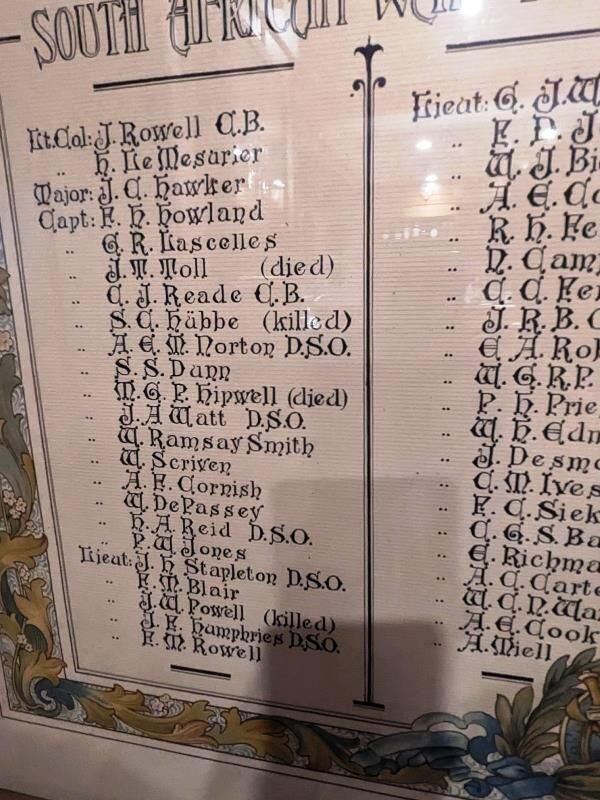 SOUTH AFRICAN
Lt. Col: J. Rowell C.B.
" H. Le Mesurier
Major: J. C. Hawker
Capt: F. H. Howland
" G. R. Lascelles
" J. T. Toll (died)
" C. J. Reade C.B.
" S. C. Hübbe (killed)
" A. E. M. Norton D.S.O.
" S. S. Dunn
" M. G. P. Hipwell (died)
" J. A Watt D.S.O.
" W. Ramsay Smith
" W. Scriven
" A. F. Cornish
" W. DePassey
" H. A Reid D.S.O.
" P. W. Jones
Lieut: J. H. Stapleton D.S.O.
" F. M. Blair
" J. W. Powell (killed)
" J. F. Humphries D.S.O.
" F. M. Rowell
Lieut: G. J. W
" F. P. J
" W. J. Bi
" A. E. Co
" R. H. Fe
" N. Cam
" C. C. Fe
" J. R. B. C
" E. A. Ro
" W. G. R. P.
" P. H. Prie
" W. H. Edm
" J. Desmo
" C. M. Ives
" F. C. Siek
" C. G. S. Ba
" E. Richma
" A. C. Carte
" W. C. N. Wa
" A. E. Cook
" A. Miell